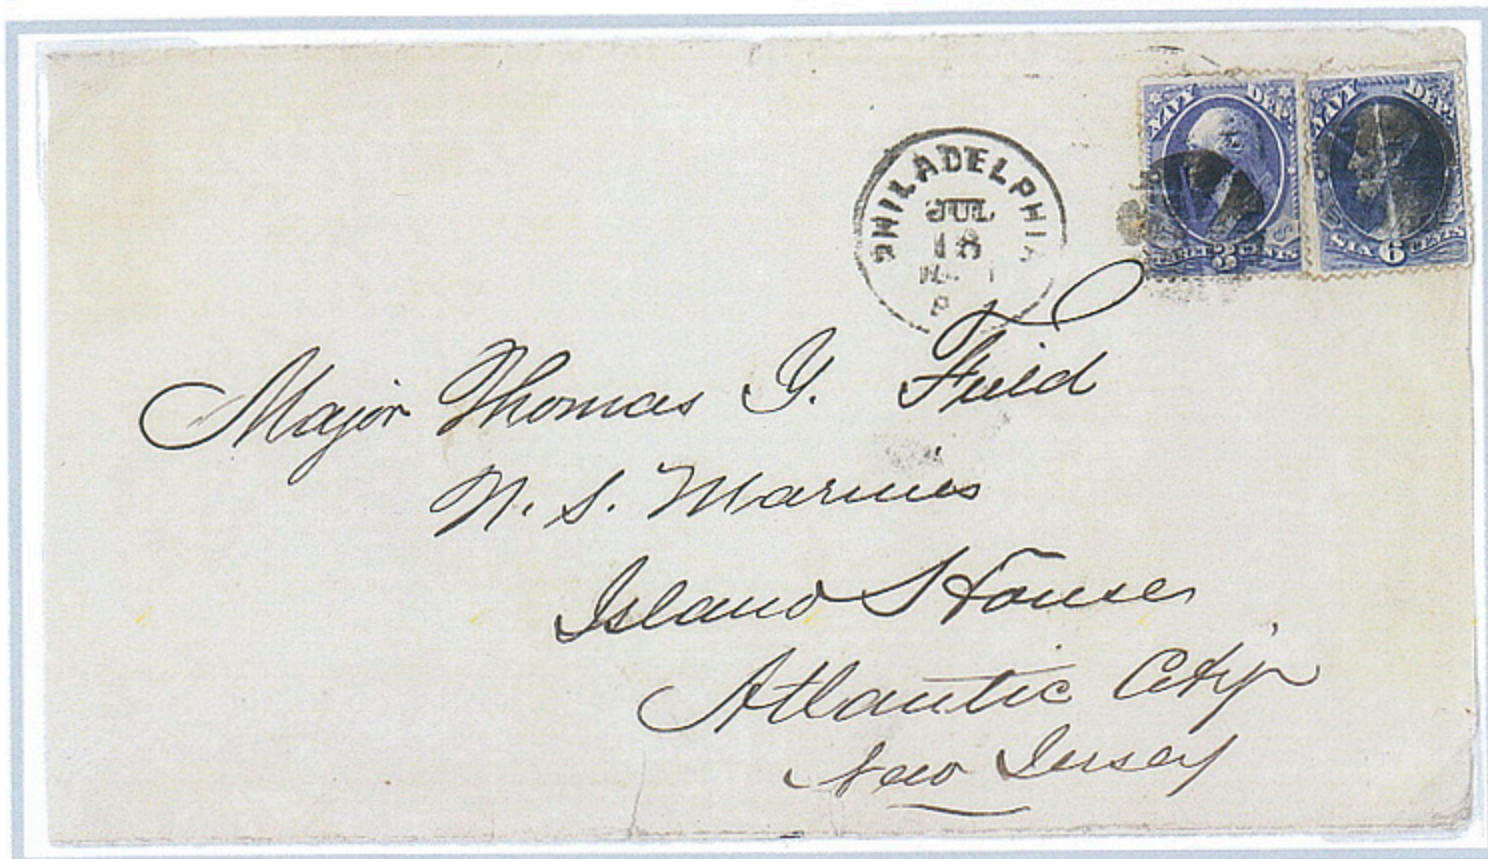 NAVY DEPT.
THREE 3 CENTS
NAVY DEPT.
SIX 6 CENTS
PHILADELPHIA
JUL
18
Major Thomas Y. Field
U. S. Marines
Island House
Atlantic City
New Jersey